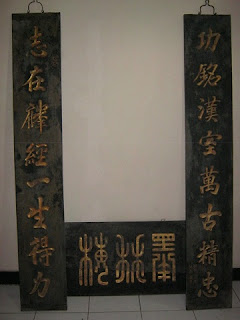 功銘漢室萬古精忠
志在麟經一生得力
林梅